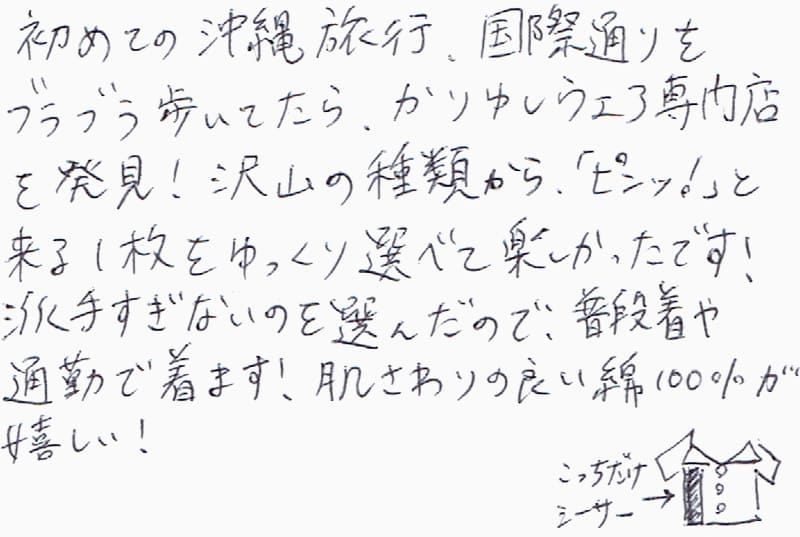 初めての沖縄旅行、国際通りを
ブラブラ歩いてたら、かりゆしウエア専門店
を発見!沢山の種類から、「ピンッ!」と
来る1枚をゆっくり選べて楽しかったです!
派手すぎないのを選んだので、普段着や
通勤で着ます!肌さわりの良い綿100%が
嬉しい!
こっちだけ
シーサー→